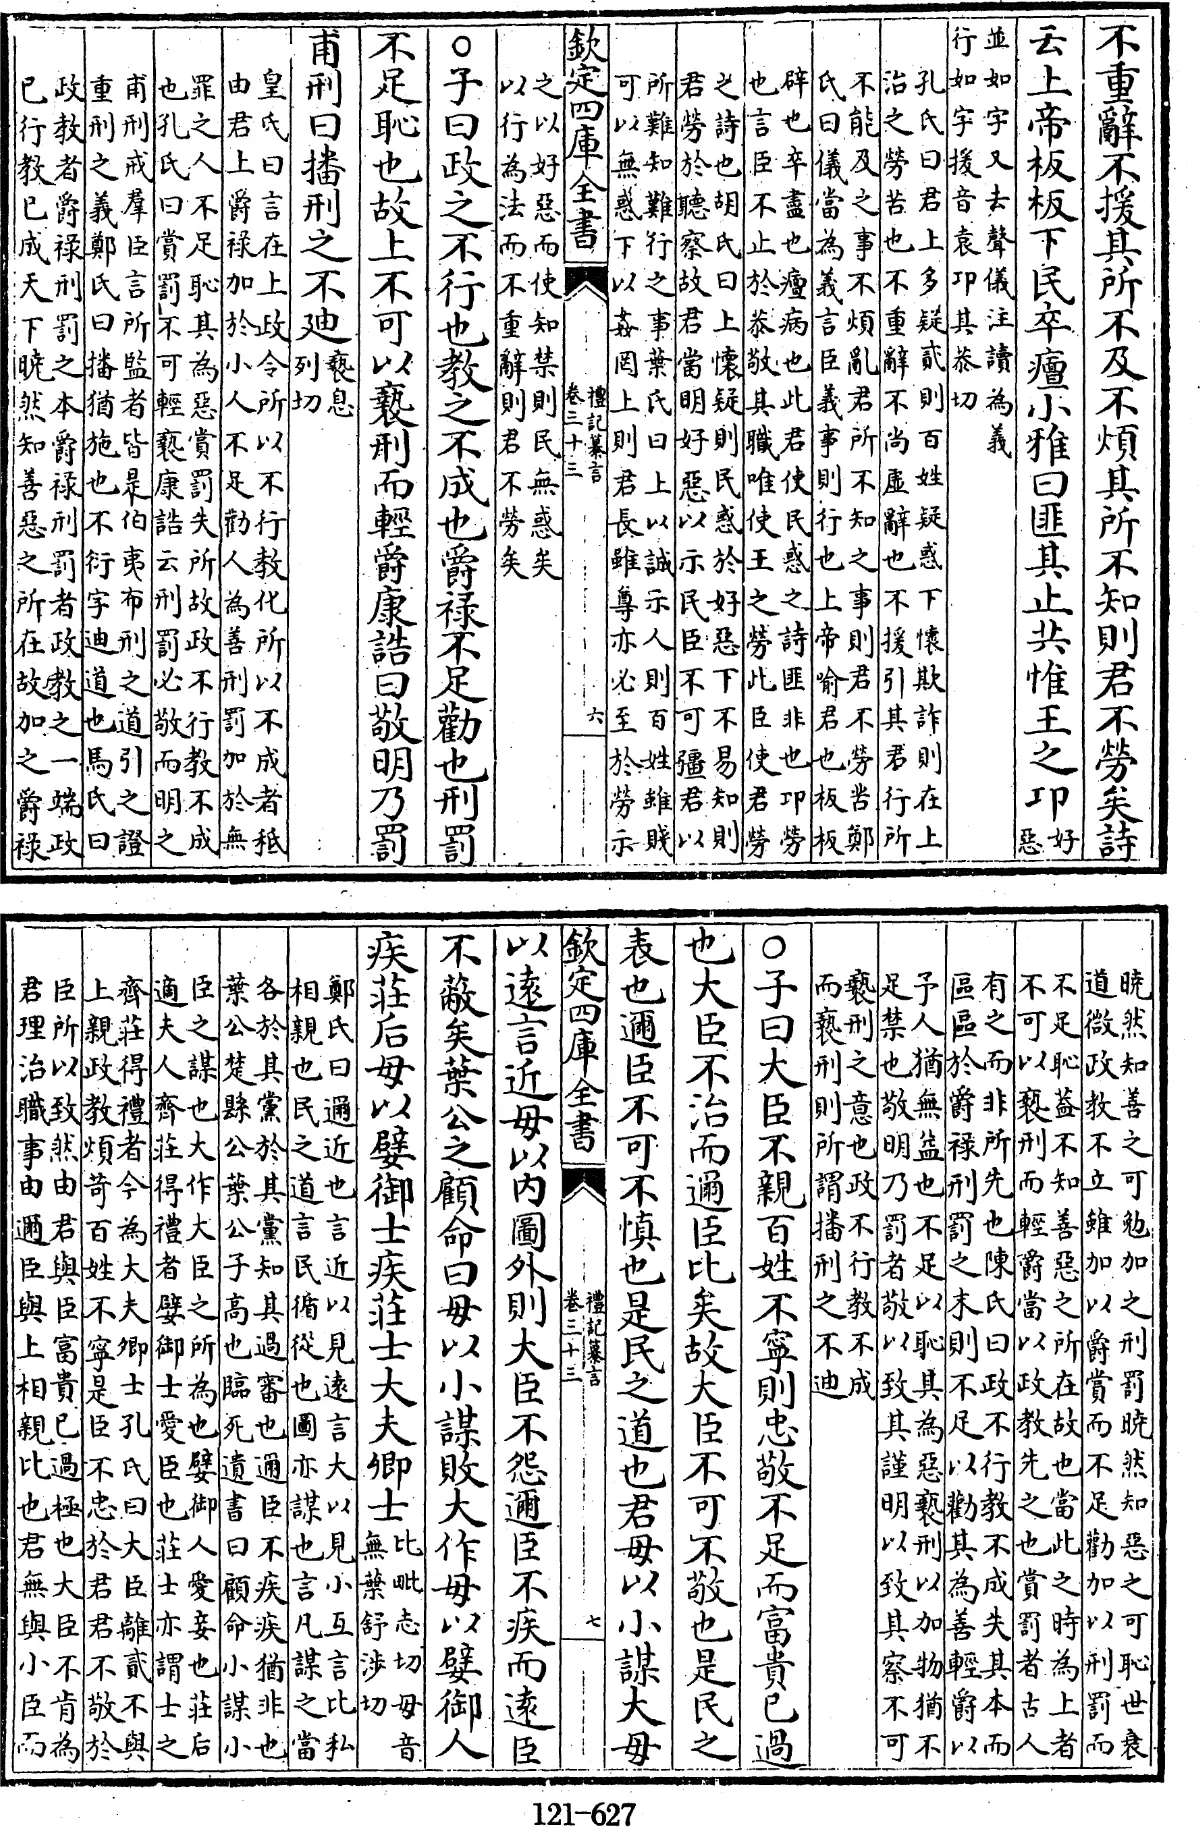 不重辭不援其所不及不煩其所不知則君不勞矣詩
云上帝板板下民卒癉小雅曰匪其止共惟王之卭好
惡
並如字又去聲儀注讀為義
行如字援音袁卭其恭切
孔氏曰君上多疑貳則百姓疑惑下懷欺詐則在上
治之勞苦也不重辭不尚虛辭也不援引其君行所
不能及之事不煩亂君所不知之事則君不勞苦鄭
氏曰儀當為義言臣義事則行也上帝喻君也板板
辟也卒盡也癉病也此君使民惑之詩匪非也卭勞
也言臣不止於恭敬其職唯使王之勞此臣使君勞
之詩也胡氏曰上懷疑則民惑於好惡下不易知則
君勞於聽察故君當明好惡以示民臣不可彊君以
所難知難行之事葉氏曰上以誠示人則百姓雖賤
可以無惑下以姦罔上則君長雖尊亦必至於勞示
欽定四庫全書
禮記纂言
卷三十三
六
之以好惡而使知禁則民無惑矣
以行為法而不重辭則君不勞矣
○子曰政之不行也教之不成也爵禄不足勸也刑罰
不足恥也故上不可以褻刑而輕爵康誥曰敬明乃罰
甫刑曰播刑之不廸褻息
列切
皇氏曰言在上政令所以不行教化所以不成者秪
由君上爵禄加於小人不足勸人為善刑罰加於無
罪之人不足恥其為惡賞罰失所故政不行教不成
也孔氏曰賞罰不可輕褻康誥云刑罰必敬而明之
甫刑戒羣臣言所監者皆是伯夷布刑之道引之證
重刑之義鄭氏曰播猶施也不衍字迪道也馬氏曰
政教者爵禄刑罰之本爵禄刑罰者政教之一端政
已行教已成天下曉然知善惡之所在故加之爵禄
曉然知善之可勉加之刑罰曉然知惡之可恥世衰
道微政教不立雖加以爵賞而不足勸加以刑罰而
不足恥蓋不知善惡之所在故也當此之時為上者
不可以褻刑而輕爵當以政教先之也賞罰者古人
有之而非所先也陳氏曰政不行教不成失其本而
區區於爵禄刑罰之末則不足以勸其為善輕爵以
予人猶無益也不足以恥其為惡褻刑以加物猶不
足禁也敬明乃罰者敬以致其謹明以致其察不可
褻刑之意也政不行教不成
而褻刑則所謂播刑之不迪
○子曰大臣不親百姓不寧則忠敬不足而富貴已過
也大臣不治而邇臣比矣故大臣不可不敬也是民之
表也邇臣不可不慎也是民之道也君毋以小謀大毋
欽定四庫全書
禮記纂言
卷三十三
七
以遠言近毋以內圖外則大臣不怨邇臣不疾而遠臣
不蔽矣葉公之顧命曰毋以小謀敗大作毋以嬖御人
疾莊后毋以嬖御士疾莊士大夫卿士比毗志切毋音
無葉舒涉切
鄭氏曰邇近也言近以見遠言大以見小互言比私
相親也民之道言民循從也圖亦謀也言凡謀之當
各於其黨於其黨知其過審也邇臣不疾疾猶非也
葉公楚縣公葉公子高也臨死遺書曰顧命小謀小
臣之謀也大作大臣之所為也嬖御人愛妾也莊后
適夫人齊莊得禮者嬖御士愛臣也莊士亦謂士之
齊莊得禮者今為大夫卿士孔氏曰大臣離貳不與
上親政教煩苛百姓不寧是臣不忠於君君不敬於
臣所以致然由君與臣富貴已過極也大臣不肯為
君理治職事由邇臣與上相親比也君無與小臣而
121-627